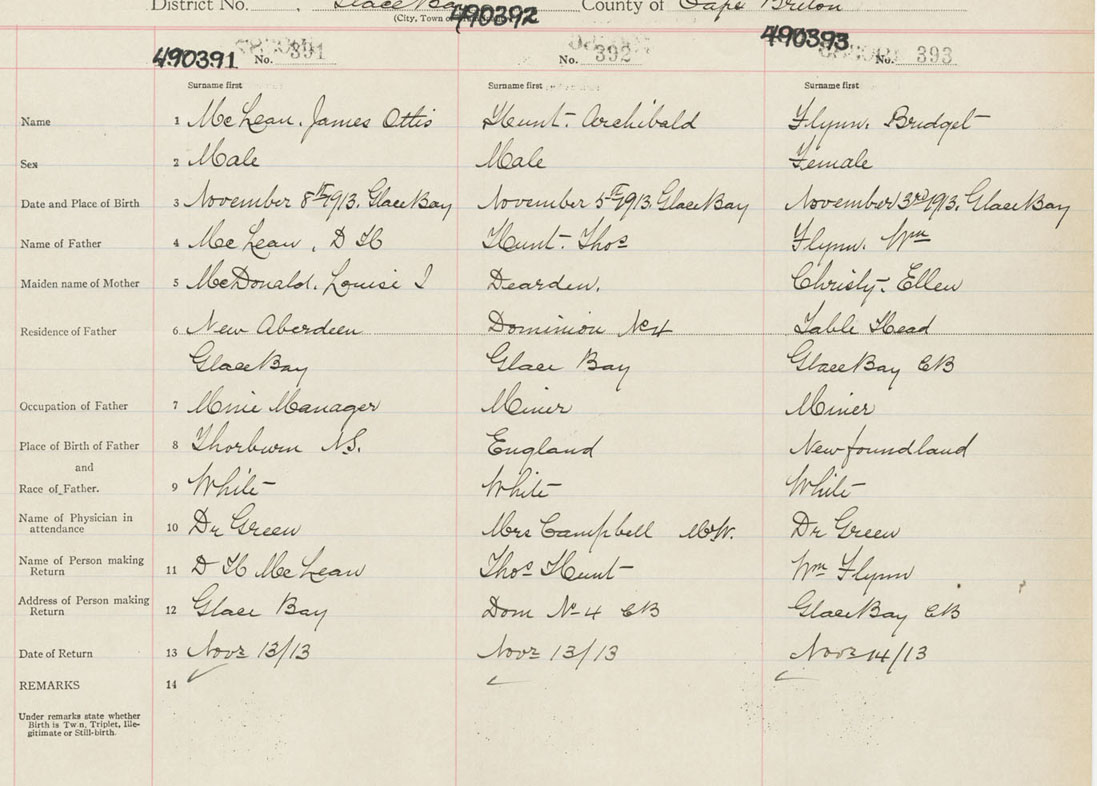 District No. , Glace Bay County of Cape Breton
(City, Town
490391 490392 490393
No. 391 No. 392 No. 393
Surname first Surname first Surname first
Name 1 McLean, James Ottis Hunt- Archibald Flynn, Bridget
Sex 2 Male Male Female
Date and Place of Birth 3 November 8th 1913, Glace Bay November 5th 1913, Glace Bay November 3rd 1913, Glace Bay
Name of Father 4 McLean, D H Hunt- Thos Flynn, Wm
Maiden name of Mother 5 McDonald, Louise J Dearden, Christy- Ellen
Residence of Father 6 New Aberdeen Dominion No 4 Table Head
Glace Bay Glace Bay Glace Bay CB
Occupation of Father 7 Mine Manager Miner Miner
Place of Birth of Father 8 Thorburn N.S. England Newfoundland
and
Race of Father. 9 White White White
Name of Physician in
attendance 10 Dr Green Mrs Campbell MW. Dr Green
Name of Person making
Return 11 D H McLean Thos Hunt Wm Flynn
Address of Person making
Return 12 Glace Bay Dom No 4 CB Glace Bay CB
Date of Return 13 Novr 13/13 Novr 13/13 Novr 14/13
REMARKS 14
Under remarks state whether
Birth is Twin, Triplet, Ille-
gitimate or Still-birth.